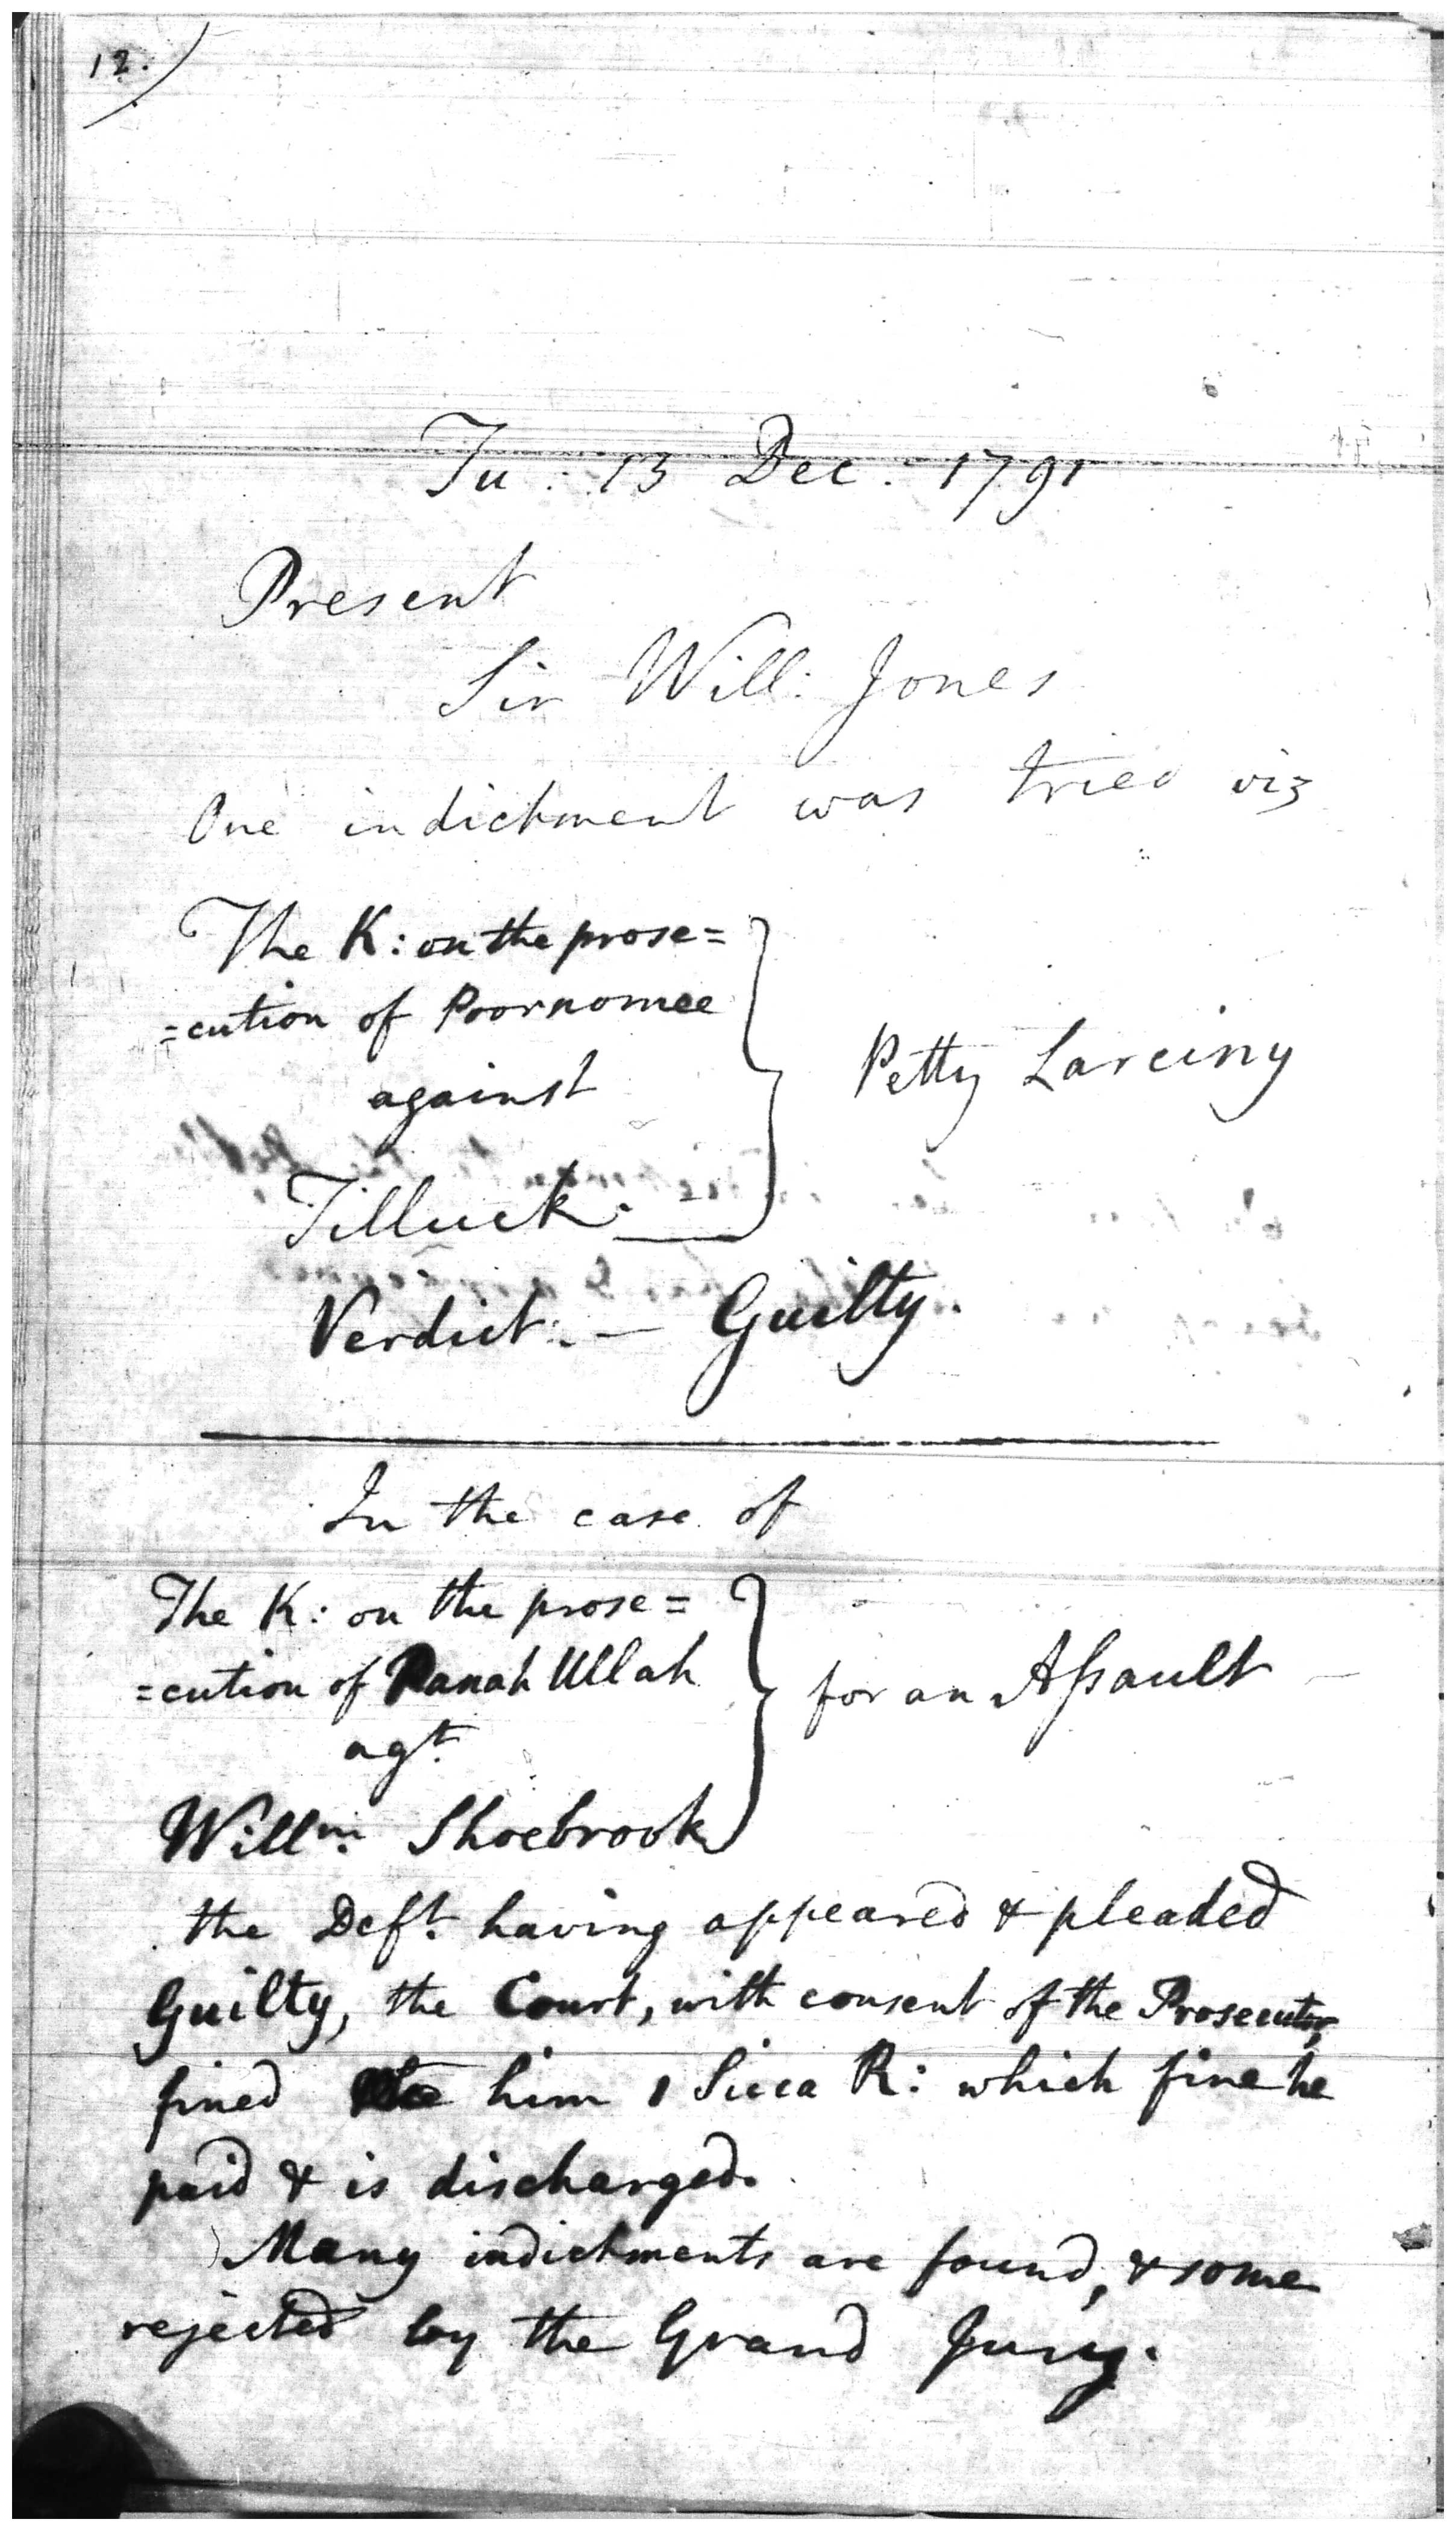 12.
Tu : 13 Dec : 1791
Present
Sir Will: Jones
One indictment was tried viz
The K: on the prose=
=cution of Poornomee
against
Tilluck.
Petty Larciny
Verdict. — Guilty.
In the case of
The K: on the prose=
=cution of Panah Ullah
agt.
Willm. Shoebrook
for an Assault
the Deft. having appeared & pleaded
Guilty, the Court, with consent of the Prosecutor,
fined him 1 Sicca R: which fine he
paid & is discharged.
Many indictments are found, & some
rejected by the Grand Jury.